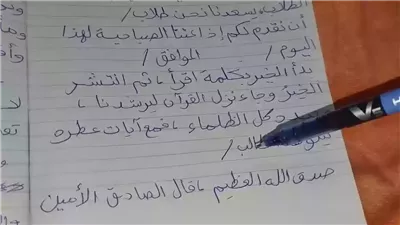 الطلاب، يسعدنا نحن طلاب /
أن نقدم لكم إذاعتنا الصباحية لهذا
اليوم / الموافق /
بدأ الخير بكلمة اقرأ ، ثم انتشر
الخير وجاء نزول القرآن ليرشدنا ،
كل الظلماء ، فمع آيات عطره
صدق الله العظيم ، قال الصادق الأمين